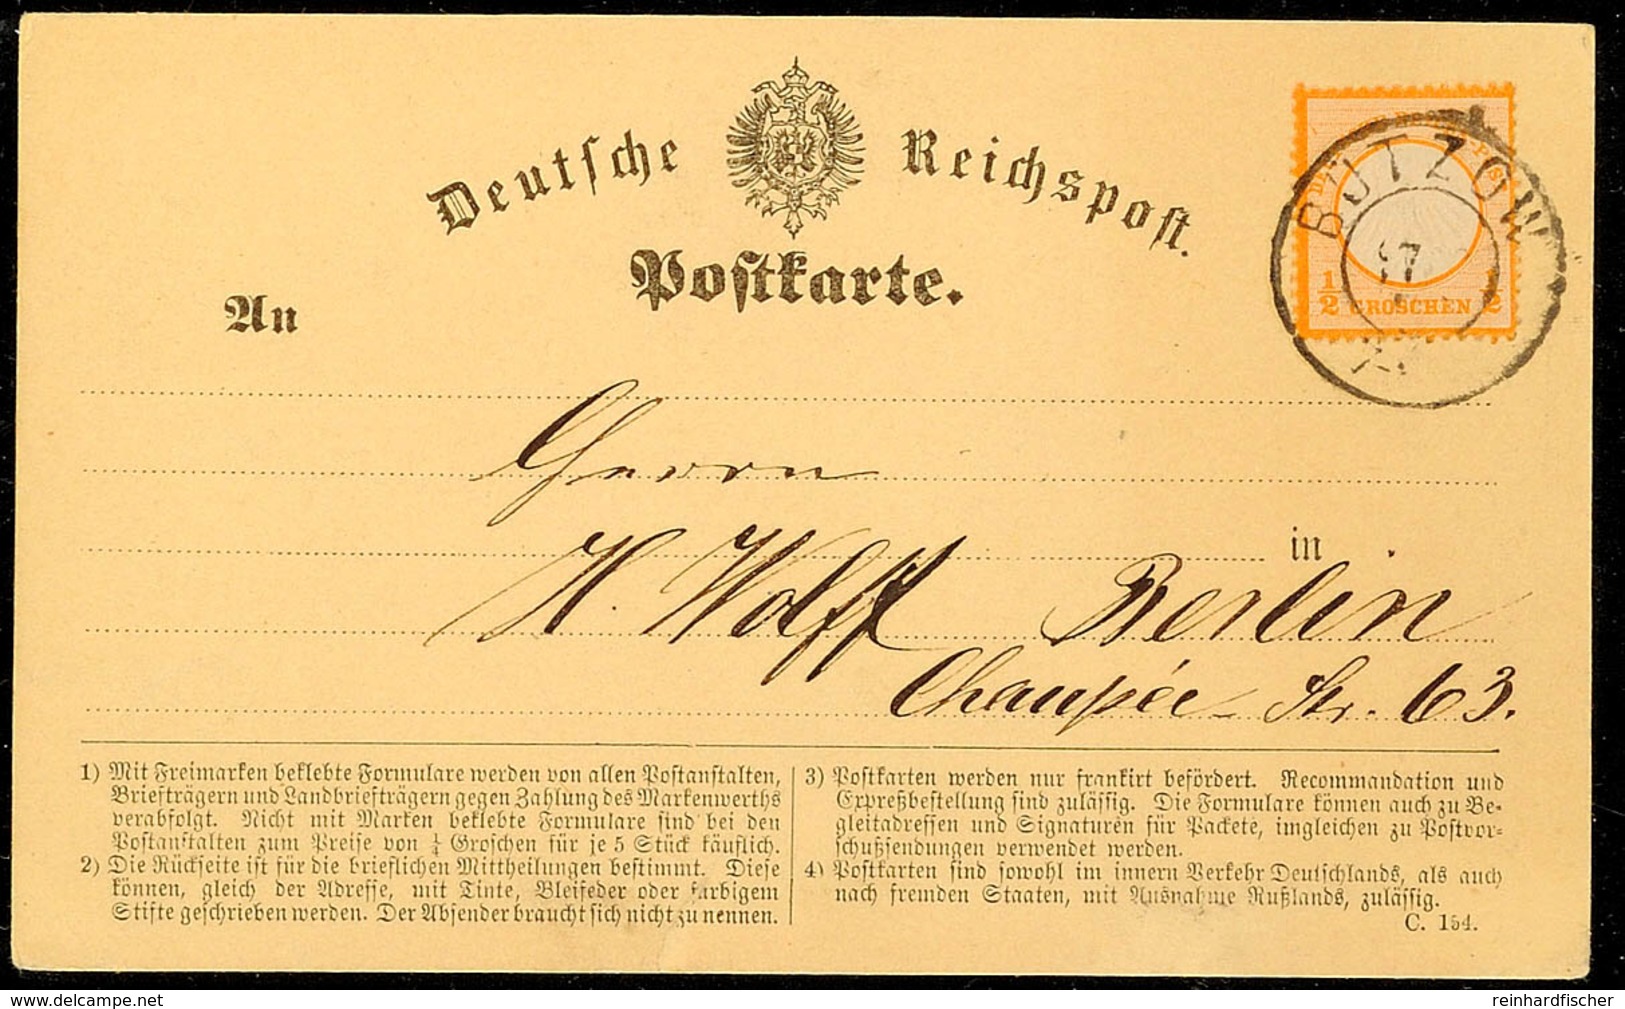 Deutsche Reichspost.
Postkarte.
BÜTZOW
17
1/2 GROSCHEN 1/2
An
Herrn
in
H. Wolff Berlin
Chaussée Str. 63.
1) Mit Freimarken beklebte Formulare werden von allen Postanstalten,
Briefträgern und Landbriefträgern gegen Zahlung des Markenwerths
verabfolgt. Nicht mit Marken beklebte Formulare sind bei den
Postanstalten zum Preise von ¼ Groschen für je 5 Stück käuflich.
2) Die Rückseite ist für die brieflichen Mittheilungen bestimmt. Diese
können, gleich der Adresse, mit Tinte, Bleifeder oder farbigem
Stifte geschrieben werden. Der Absender braucht sich nicht zu nennen.
3) Postkarten werden nur frankirt befördert. Recommandation und
Expreßbestellung sind zulässig. Die Formulare können auch zu Be-
gleitadressen und Signaturen für Packete, imgleichen zu Postvor-
schußsendungen verwendet werden.
4) Postkarten sind sowohl im innern Verkehr Deutschlands, als auch
nach fremden Staaten, mit Ausnahme Rußlands, zulässig.
C. 154.
reinhardfischer
© delcampe.net